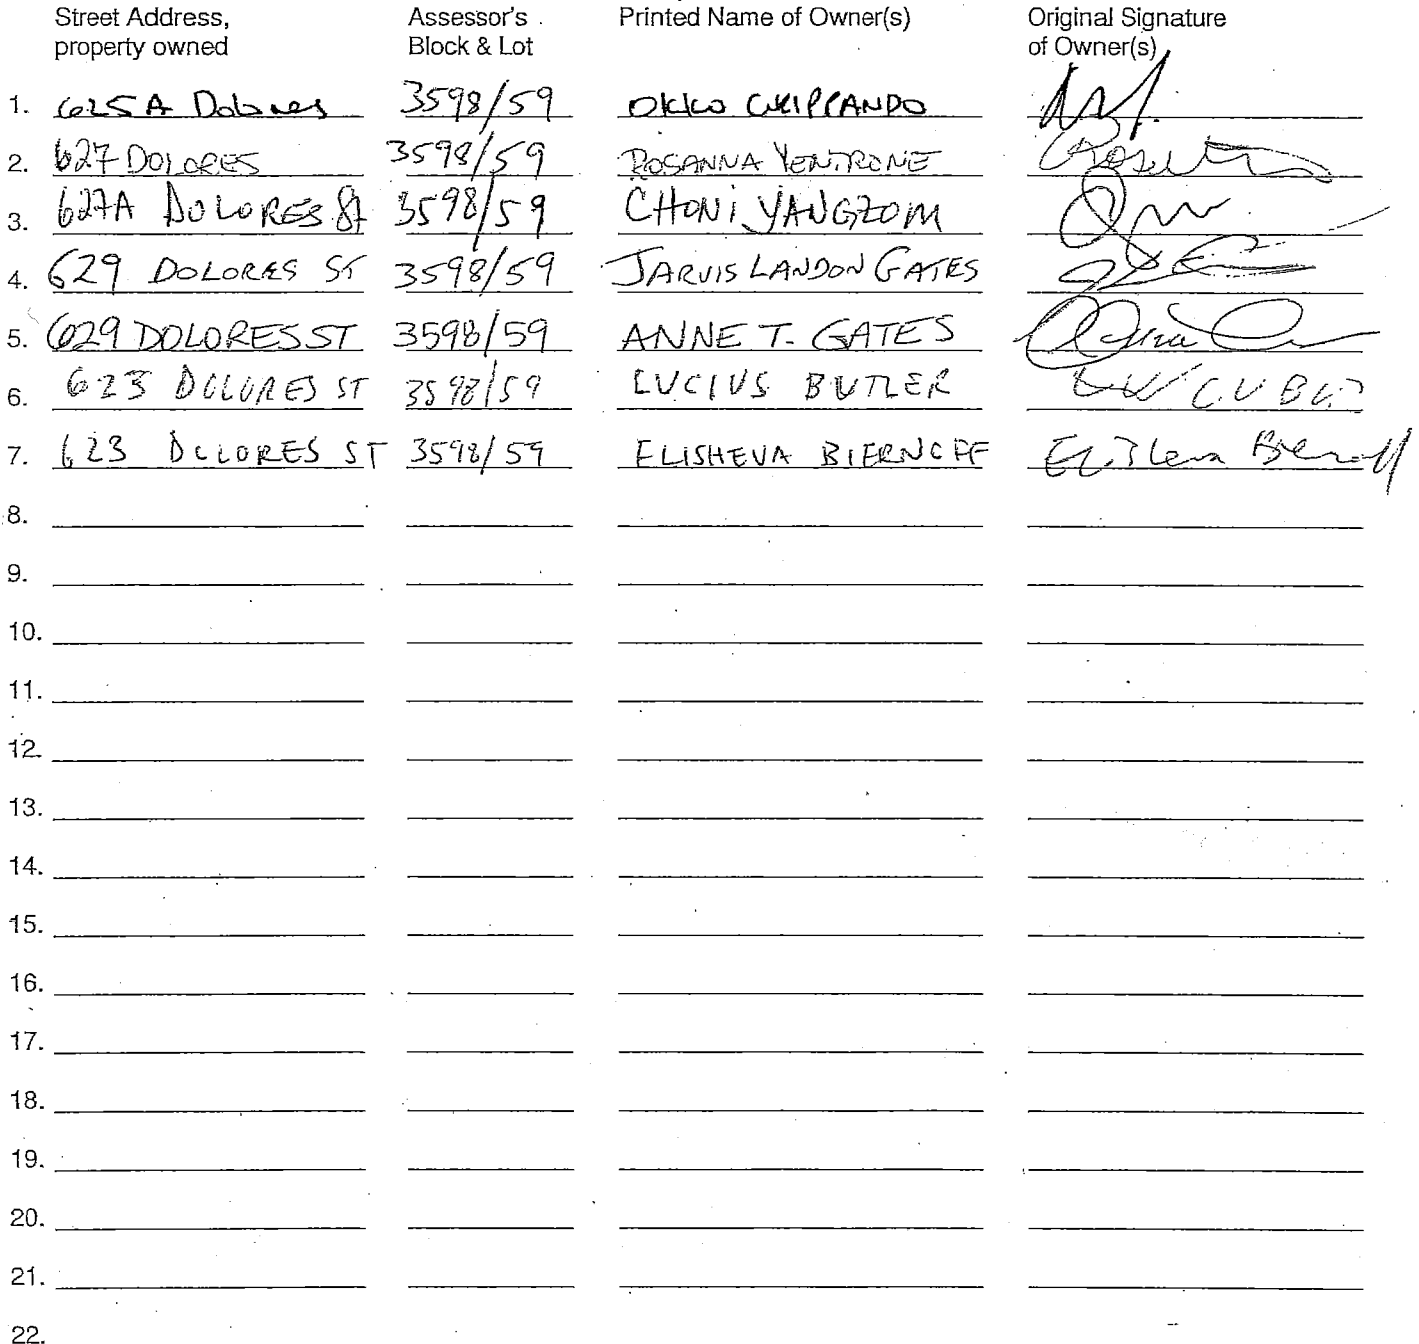 Street Address, Assessor's Printed Name of Owner(s) Original Signature
property owned Block & Lot of Owner(s)
1. 625A Dolores 3598/59 OKKO
2. 627 DOLORES 3598/59 ROSANNA VENTRONE
3. 627A DOLORES St 3598/59 CHONI YANGZOM
4. 629 DOLORES ST 3598/59 JARVIS LANDON GATES
5. 629 DOLORES ST 3598/59 ANNE T. GATES
6. 623 DOLORES ST 3598/59 LUCIUS BUTLER
7. 623 DOLORES ST 3598/59 ELISHEVA BIERNOFF
8.
9.
10.
11.
12.
13.
14.
15.
16.
17.
18.
19.
20.
21.
22.